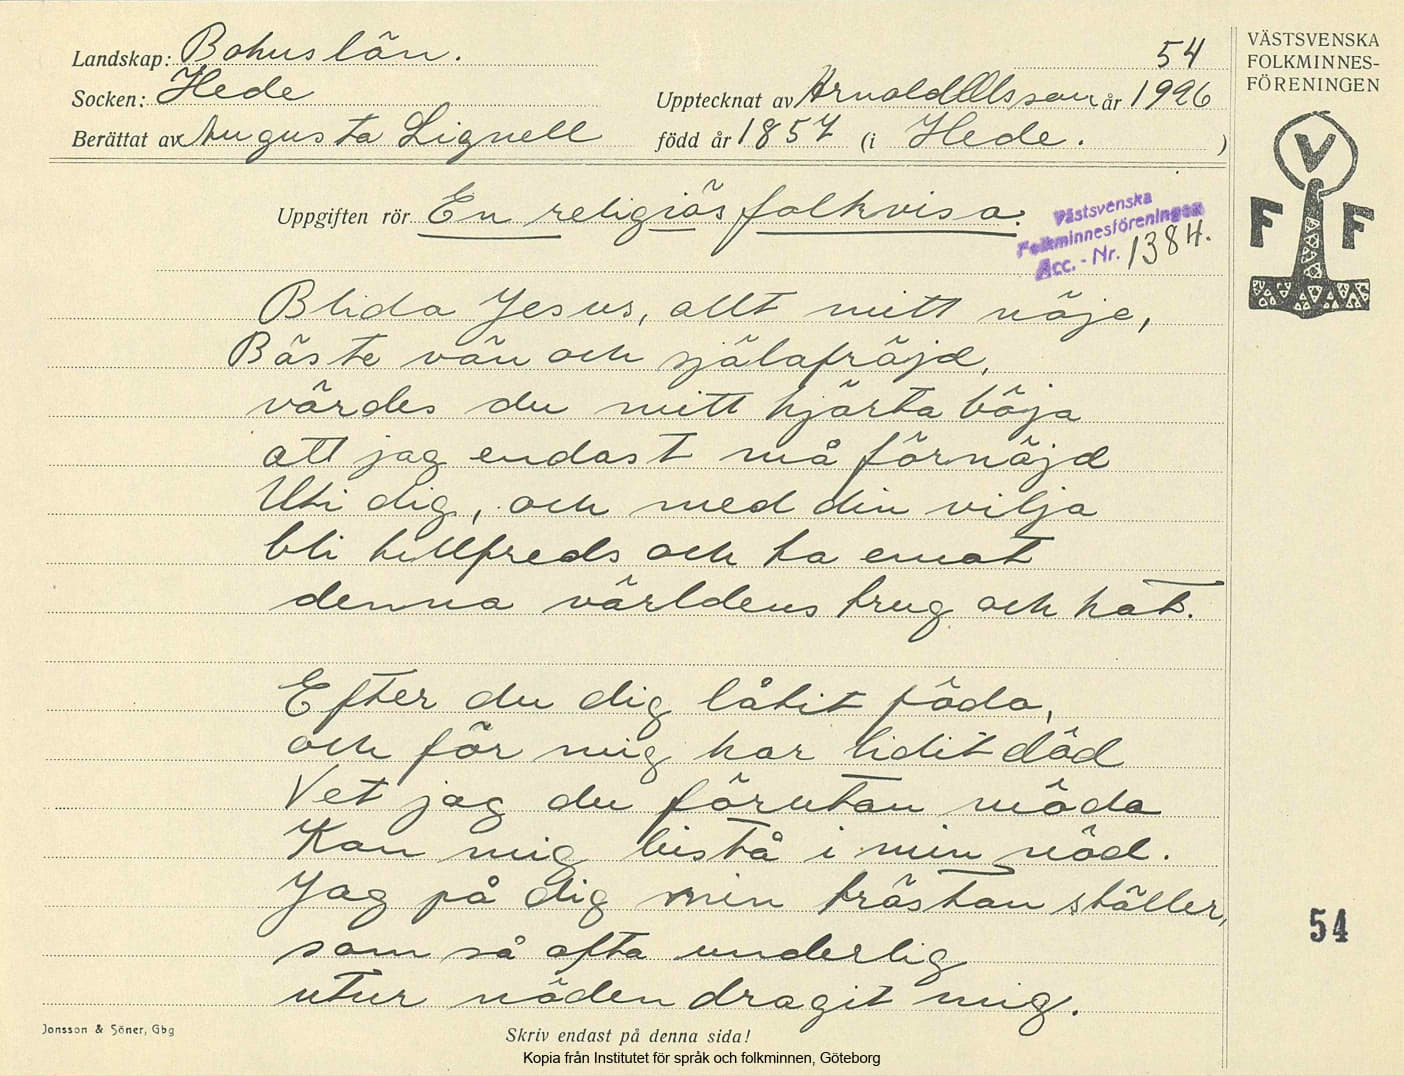 Landskap: Bohuslän.
54
Socken: Hede
Upptecknat av Arnold Olsson år 1926
Berättat av Augusta Lignell
född år 1857 (i Hede. )
VÄSTSVENSKA
FOLKMINNES-
FÖRENINGEN
V
F F
Uppgiften rör En religiös folkvisa.
Västsvenska
Folkminnesföreningen
Acc. - Nr. 1384.
Blida Jesus, allt mitt nöje,
Bäste vän och själafröjd,
värdes du mitt hjärta böja
att jag endast må förnöjd
Uti dig, och med din vilja
bli tillfreds och ta emot
denna världens trug och hot.
Efter du dig låtit föda,
och för mig har lidit död
Vet jag du förutan möda
Kan mig bistå i min nöd.
Jag på dig min tröstan ställer,
som så ofta underlig
utur nöden dragit mig.
54
Jonsson & Söner, Gbg
Skriv endast på denna sida!
Kopia från Institutet för språk och folkminnen, Göteborg